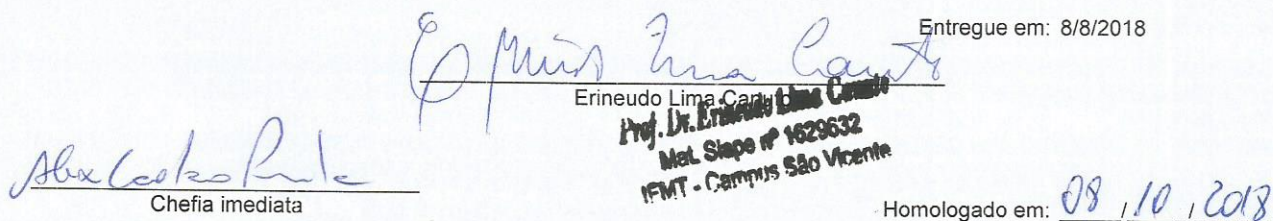 Entregue em: 8/8/2018
Erineudo Lima Canuto
Prof. Dr. Erineudo Lima Canuto
Mat. Siape nº 1629632
IFMT - Campus São Vicente
Chefia imediata
Homologado em: 08 / 10 / 2018